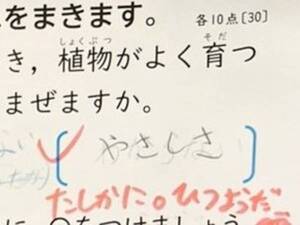 をまきます。 各10点[30]
しょくぶつ そだ
き，植物がよく育つ
まぜますか。
やさしさ
たしかに。ひつようだ
に，○をつけましょう